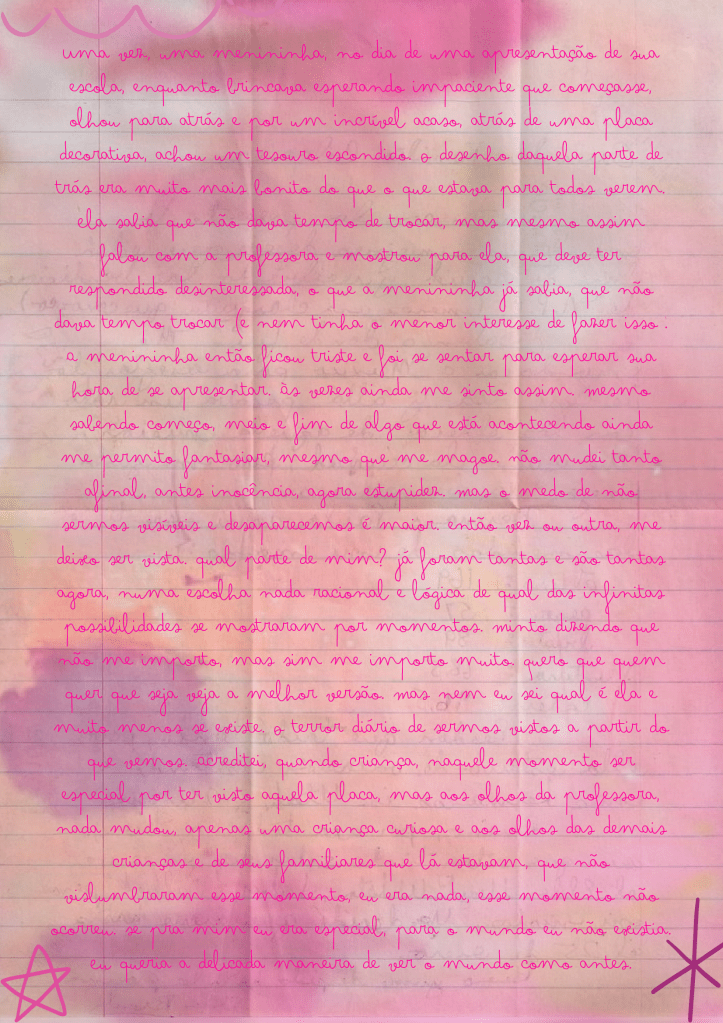 uma vez, uma menininha, no dia de uma apresentação de sua
escola, enquanto brincava esperando impaciente que começasse,
olhou para atrás e por um incrível acaso, atrás de uma placa
decorativa, achou um tesouro escondido. o desenho daquela parte de
trás era muito mais bonito do que o que estava para todos verem.
ela sabia que não dava tempo de trocar, mas mesmo assim
falou com a professora e mostrou para ela, que deve ter
respondido desinteressada, o que a menininha já sabia, que não
dava tempo trocar (e nem tinha o menor interesse de fazer isso .
a menininha então ficou triste e foi se sentar para esperar sua
hora de se apresentar. às vezes ainda me sinto assim. mesmo
sabendo começo, meio e fim de algo que está acontecendo ainda
me permito fantasiar, mesmo que me magoe. não mudei tanto
afinal, antes inocência, agora estupidez. mas o medo de não
sermos visíveis e desaparecemos é maior. então vez ou outra, me
deixo ser vista. qual parte de mim? já foram tantas e são tantas
agora, numa escolha nada racional e lógica de qual das infinitas
possibilidades se mostraram por momentos. minto dizendo que
não me importo, mas sim me importo muito. quero que quem
quer que seja veja a melhor versão. mas nem eu sei qual é ela e
muito menos se existe. o terror diário de sermos vistos a partir do
que vemos. acreditei, quando criança, naquele momento ser
especial por ter visto aquela placa, mas aos olhos da professora,
nada mudou, apenas uma criança curiosa e aos olhos das demais
crianças e de seus familiares que lá estavam, que não
vislumbraram esse momento, eu era nada, esse momento não
ocorreu. se pra mim eu era especial, para o mundo eu não existia.
eu queria a delicada maneira de ver o mundo como antes.